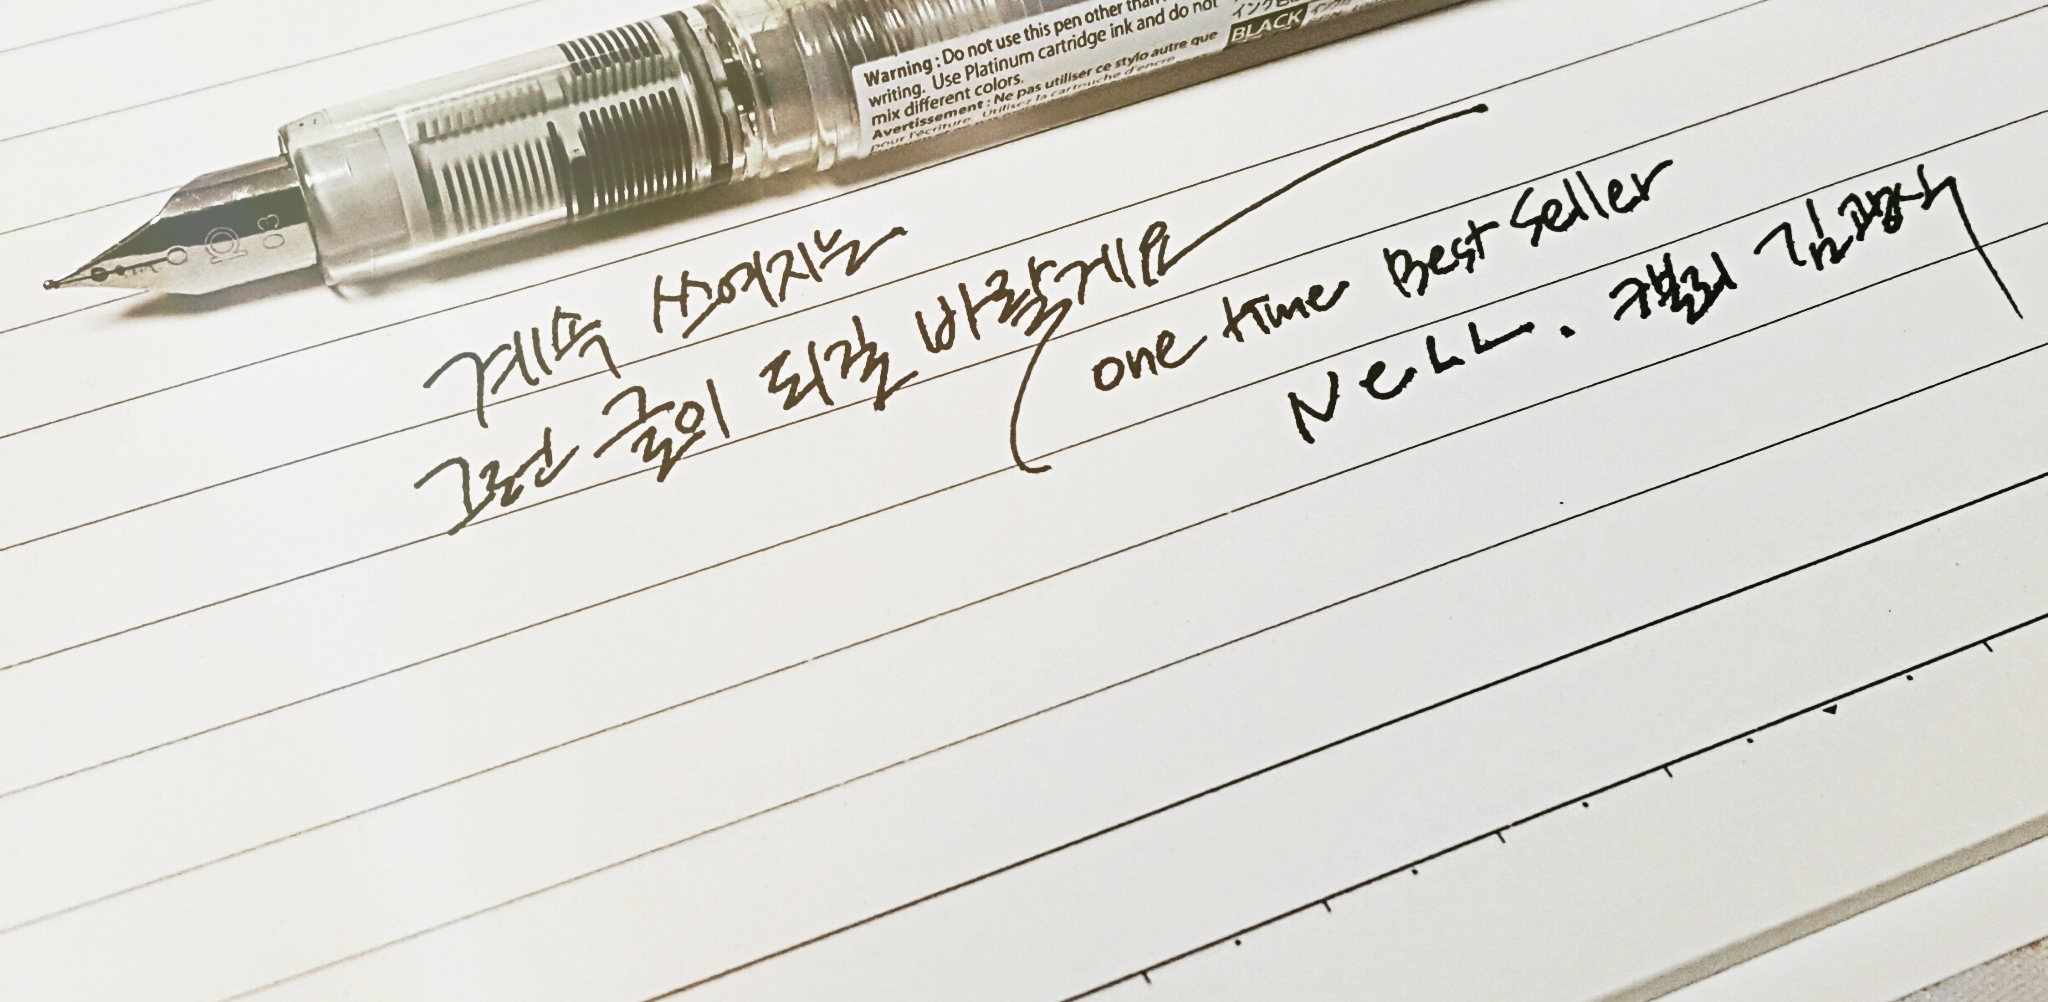 Warning : Do not use this pen other than
writing. Use Platinum cartridge ink and do not
mix different colors.
Avertissement : Ne pas utiliser ce stylo autre que
pour l'écriture. Utilisez la cartouche d'encre
BLACK
03
계속 쓰여지는
그런 글이 되길 바랄게요
one time Best Seller
Nell. 김광식